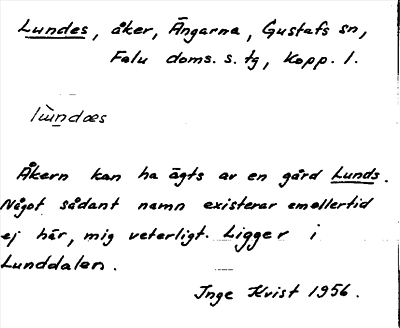 Lundes, åker, Ängarna, Gustafs sn,
Falu doms. s. tg, Kopp. l.
Åkern kan ha ägts av en gård Lunds.
Något sådant namn existerar emellertid
ej här, mig veterligt. Ligger i
Lunddalen.
Inge Kvist 1956.